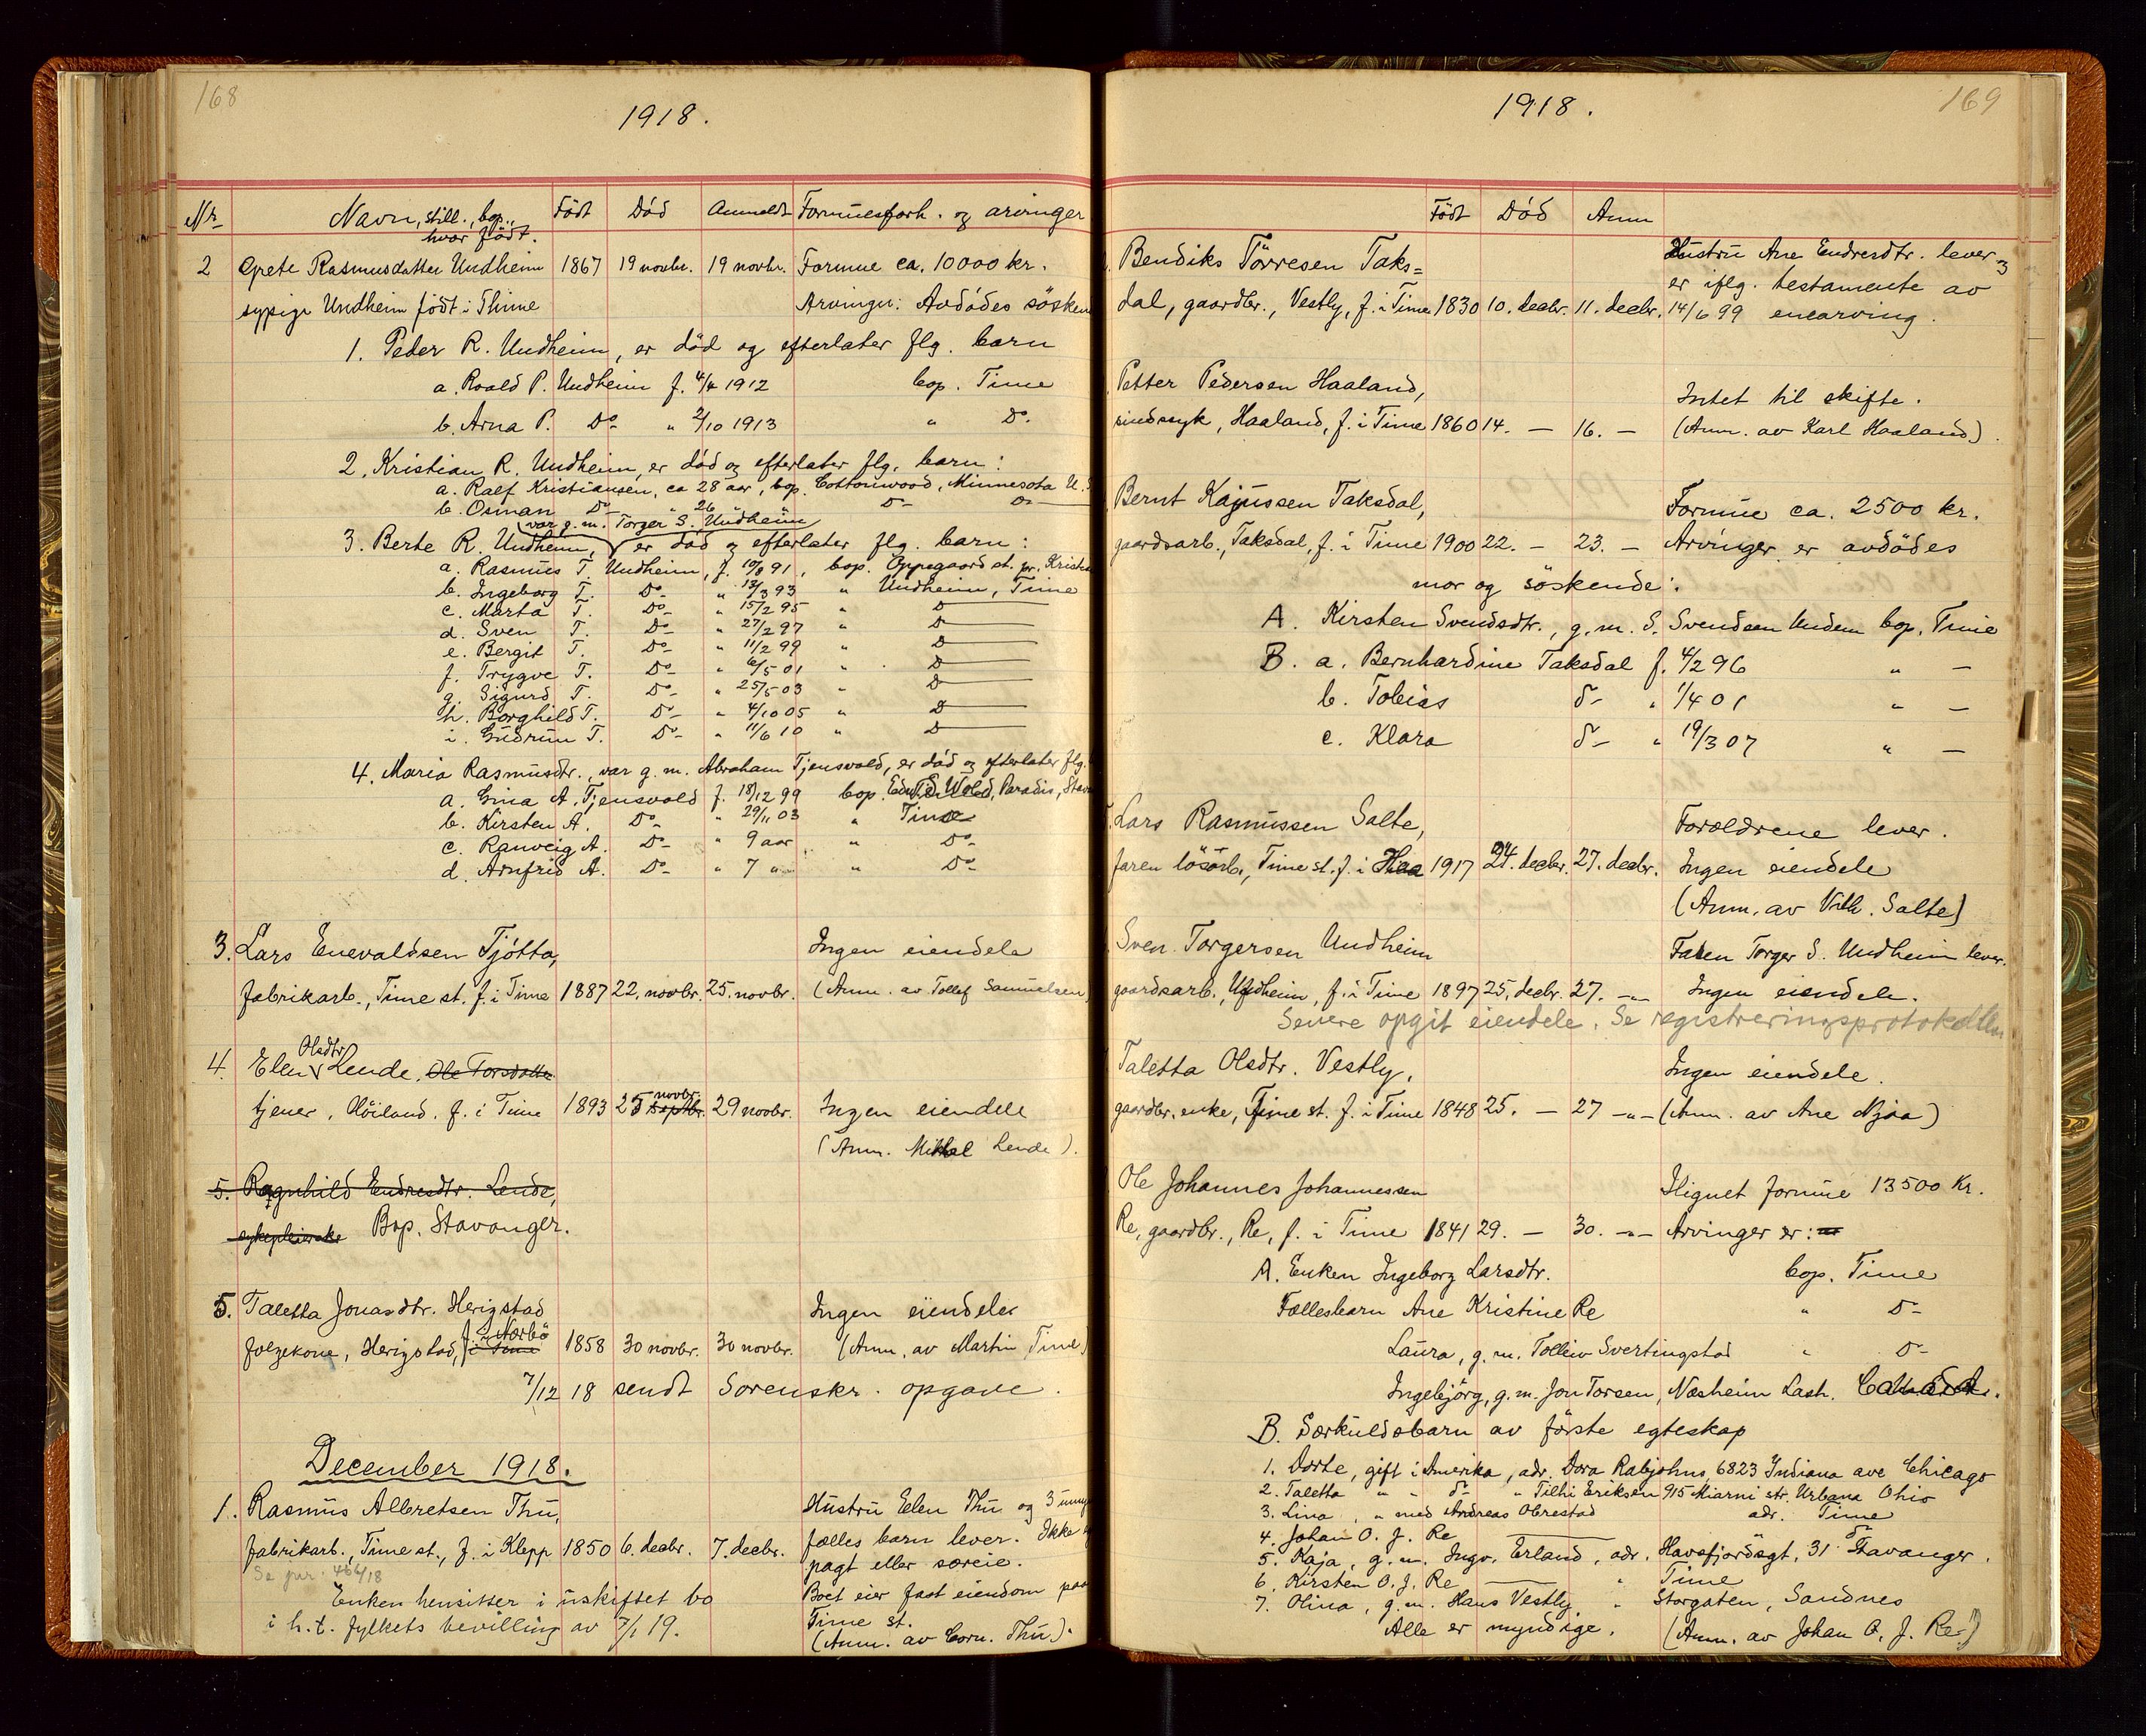 168
1918.
Nr Navn, still., bop., Födt Död Anmeldt Formuesforh. og arvinger
hvor födt.
2 Grete Rasmusdatter Undheim 1867 19 novbr. 19 novbr. Formue ca. 10000 kr.
sypige Undheim födt i Thime Arvinger: Avdödes sösken
1. Peder R. Undheim, er död og efterlater flg. barn
a. Roald P. Undheim f. 4/4 1912 bop. Time
b. Arna P. Do " 2/10 1913 " Do.
2. Kristian R. Undheim, er död og efterlater flg. barn:
a. Ralf Kristiansen, ca 28 aar, bop. Cottonwood, Minnesota U.S
b. Osman Do " 26 " " Do Do
(var g.m. Torger S. Undheim
3. Berte R. Undheim, er död og efterlater flg. barn:
a. Rasmus T. Undheim, f. 10/8 91, bop. Oppegaard st. pr. Kristia
b. Ingeborg T. Do " 13/3 93 " Undheim, Time
c. Marta T. Do " 15/2 95 " D
d. Sven T. Do " 27/2 97 " D
e. Bergit T. Do " 11/2 99 " D
f. Trygve T. Do " 6/5 01 " D
g. Sigurd T. Do " 25/5 03 " D
h. Borghild T. Do " 4/10 05 " D
i. Gudrun T. Do " 11/6 10 " D
4. Maria Rasmusdtr., var g.m. Abraham Tjensvold, er död og efterlater flg.
a. Gina A. Tjensvold f. 18/12 99 bop. Wold, Paradis, Stav
b. Kirsten A. Do " 29/11 03 " Time
c. Ranveig A. Do " 9 aar " Do
d. Arnfrid A. Do " 7 " " Do
3. Lars Enevaldsen Tjötta, Ingen eiendele
fabrikarb., Time st. f. i Time 1887 22. novbr. 25. novbr. (Anm. av Tollef Samuelsen)
Olsdtr
4. Elen Lende, Ole Torsdatter
novbr.
tjener, Höiland. f. i Time 1893 25 septbr. 29 novbr. Ingen eiendele
(Anm. Mikkel Lende).
5. Ragnhild Endresdtr. Lende,
sykepleierske Bop. Stavanger.
5. Taletta Jonasdtr. Herigstad Ingen eiendeler
f. i Nærbö
folgekone, Herigstad, f. i Time 1858 30 novbr. 30 novbr. (Anm. av Martin Time)
7/12 18 sendt Sorenskr. opgave.
December 1918.
1. Rasmus Albretsen Thu, Hustru Elen Thu og 3 umyn
fabrikarb., Time st., f. i Klepp 1850 6. decbr. 7. decbr. fælles barn lever. Ikke
Se jur. 466/18 pagt eller særeie.
Enken hensitter i uskiftet bo Boet eier fast eiendom paa
i h.t. fylkets bevilling av 7/1 19. Time st.
(Anm. av Corn. Thu).
169
1918.
Födt Död Anm
Bendiks Törresen Taks= Hustru Ane Endresdtr. lever og
er iflg. testamente av
dal, gaardbr., Vestly, f. i Time 1830 10. decbr. 11. decbr. 14/6 99 enearving.
Petter Pedersen Haaland, Intet til skifte.
sindssyk, Haaland, f. i Time 1860 14. — 16. — (Anm. av Karl Haaland).
Bernt Kajussen Taksdal, Formue ca. 2500 kr.
gaardsarb., Taksdal, f. i Time 1900 22. — 23. — Arvinger er avdödes
mor og söskende:
A. Kirsten Svendsdtr., g.m. S. Svendsen Undem bop. Time
B. a. Bernhardine Taksdal f. 4/2 96 " —
b. Tobias do " 1/4 01 " —
c. Klara do " 19/3 07 " —
Lars Rasmussen Salte, Forældrene lever.
faren lösarb., Time st. f. i Haa 1917 24. decbr. 27. decbr. Ingen eiendele
(Anm. av Vilh. Salte)
Sven Torgersen Undheim Faren Torger S. Undheim lever.
gaardsarb., Undheim, f. i Time 1897 25. decbr. 27. —"— Ingen eiendele.
Senere opgit eiendele. Se registreringsprotokollen
Taletta Olsdtr. Vestly, Ingen eiendele.
gaardbr. enke, Time st. f. i Time 1848 25. — 27 —"— (Anm. av Ane Njaa)
Ole Johannes Johannessen Ilignet formue 13500 Kr.
Re, gaardbr., Re, f. i Time 1841 29. — 30. —"— Arvinger er:
A. Enken Ingeborg Larsdtr. bop. Time
Fællesbarn Ane Kristine Re " Do
Laura, g.m. Tollew Svertingstad " Do
Ingebjörg, g.m. Jon Torsen, Næsheim Lash. Canada.
B. Særkuldsbarn av förste egteskap
1. Dorte, gift i Amerika, adr. Dora Rabjohns, 6823 Indiana ave Chicago
2. Taletta " " do " Tilhi Eriksen 915 Miami str. Urbana Ohio
3. Lina, " med Andreas Obrestad adr. Time
4. Johan O. J. Re — do
5. Kaja, g.m. Ingv. Erland, adr. Havsfjordsgt. 31 Stavanger.
6. Kirsten O. J. Re — " Time
7. Olina, g.m. Hans Vestly " Storgaten, Sandnes
Alle er myndige. (Anm. av Johan O. J. Re.)